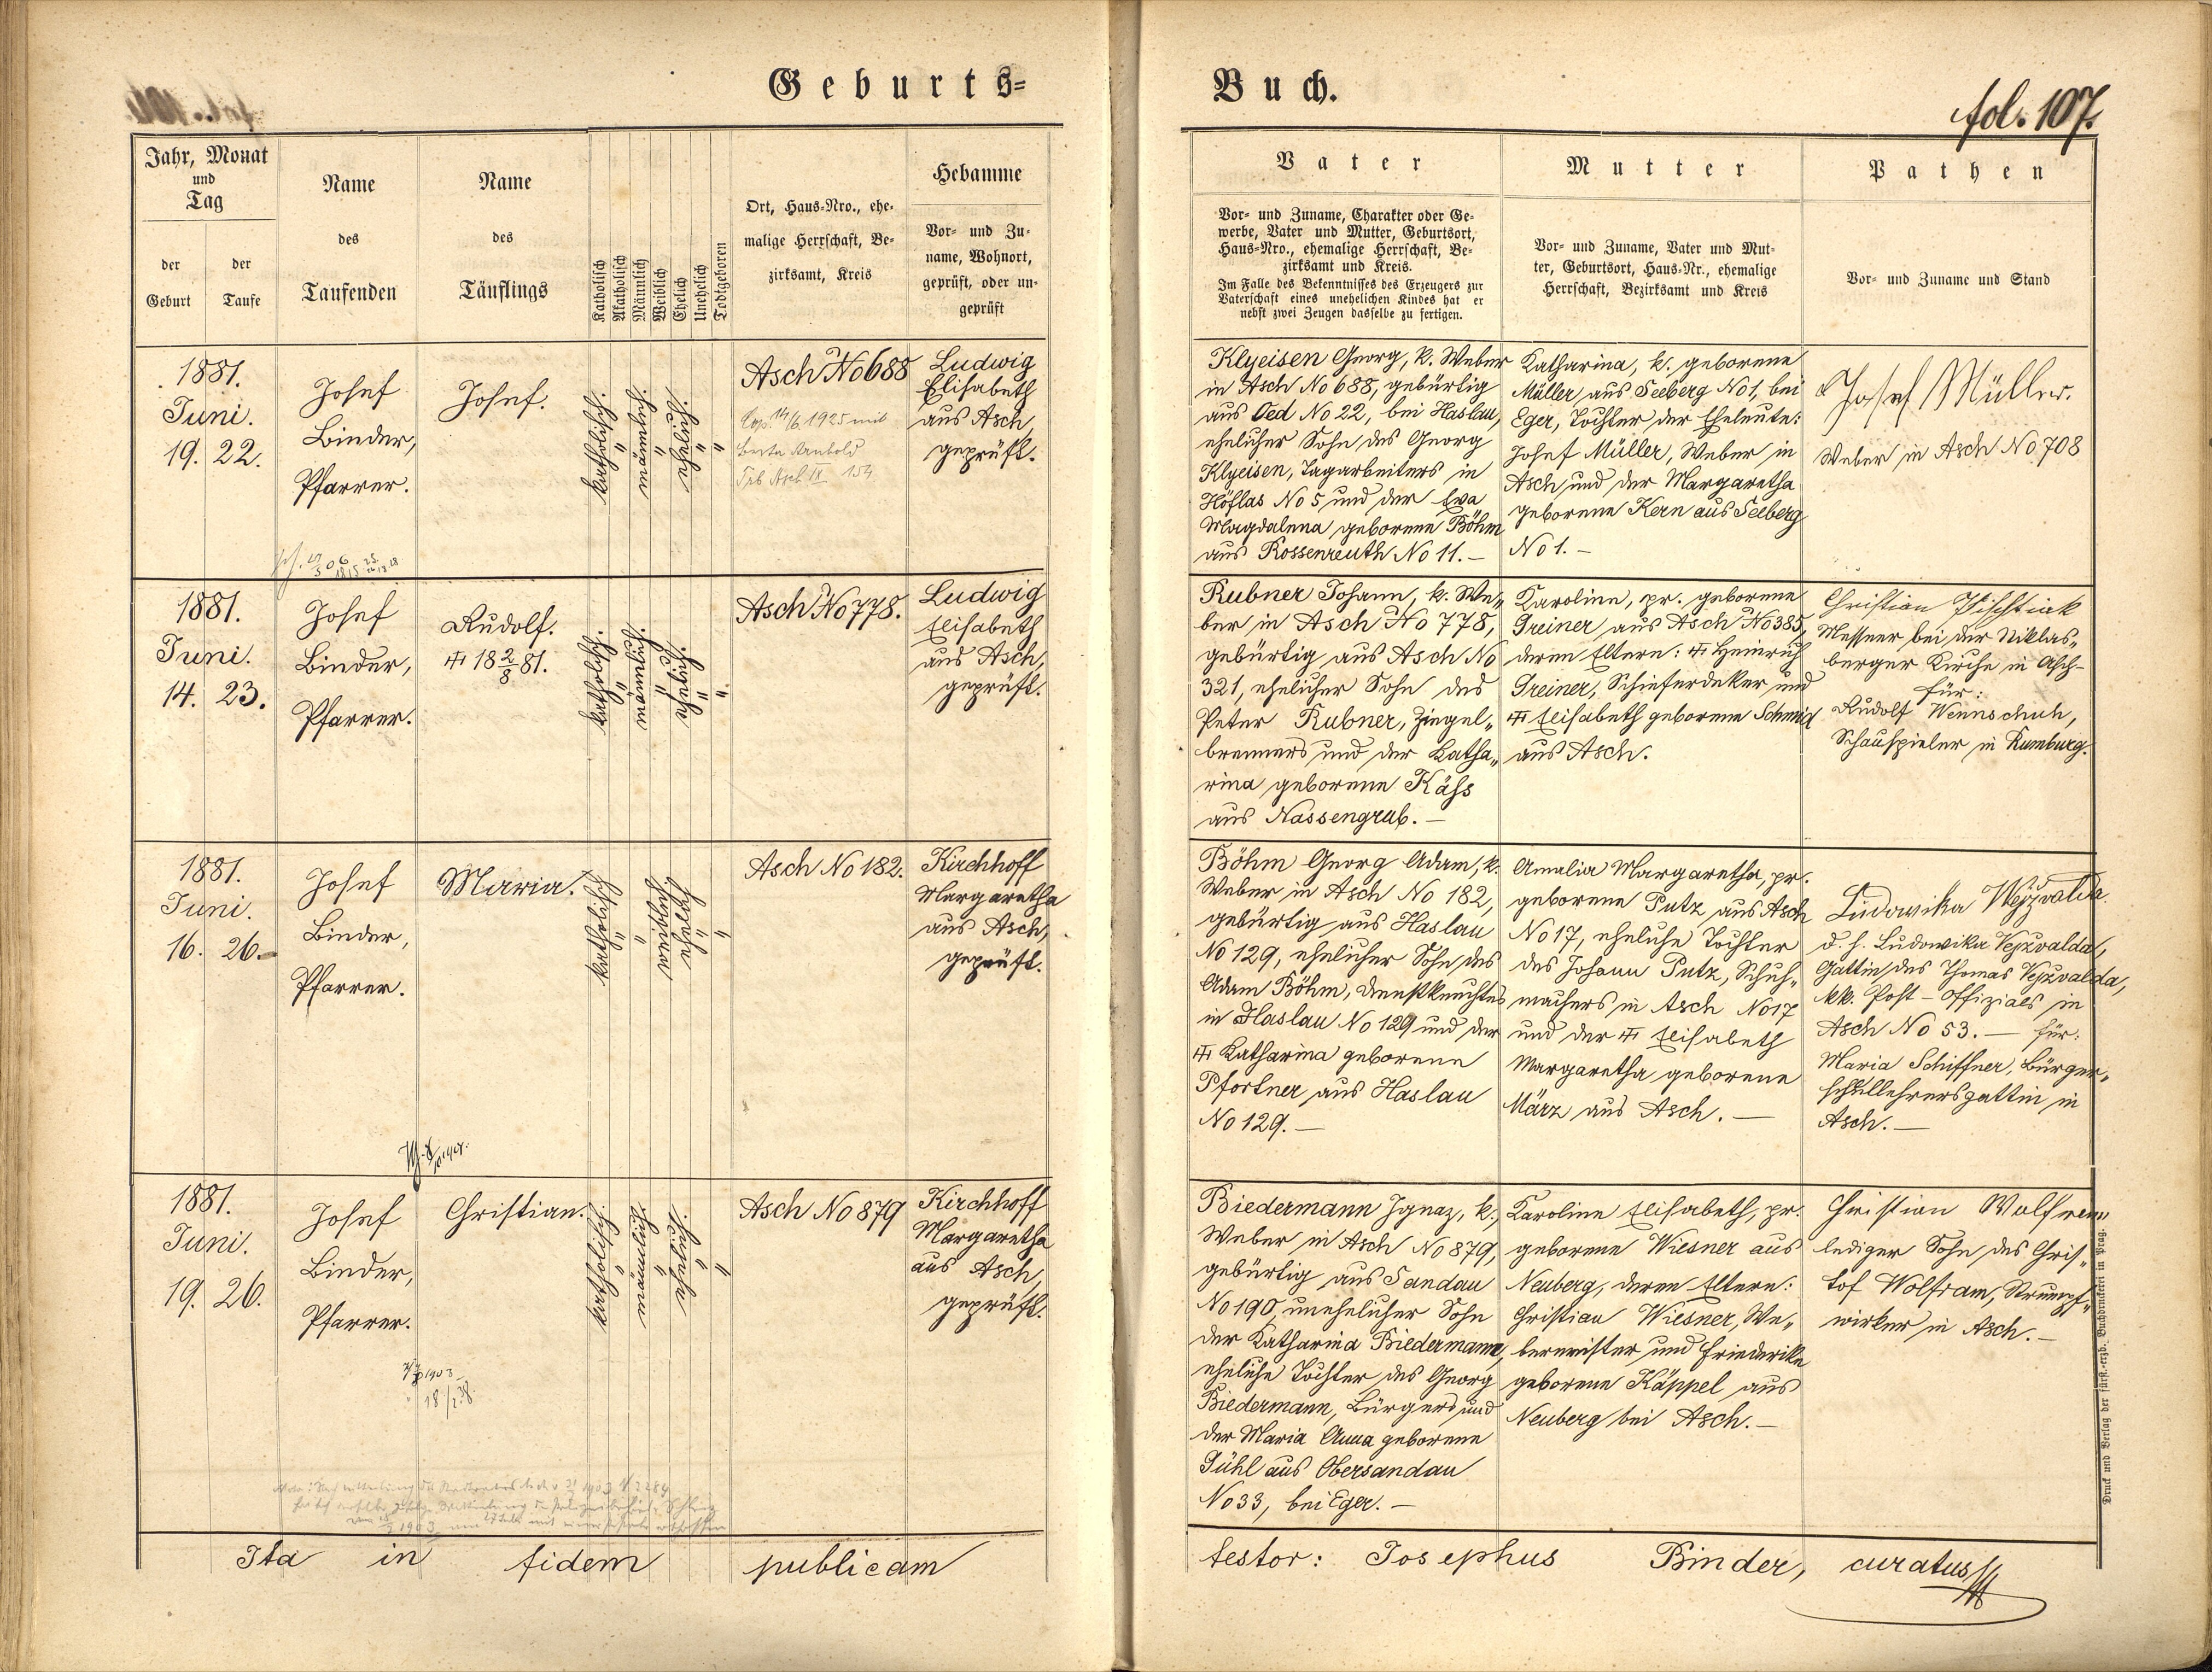 Geburts=
Buch.
fol. 107.
Jahr, Monat
und
Tag
der
Geburt
der
Taufe
Name
des
Taufenden
Name
des
Täuflings
Katholisch
Akatholisch
Männlich
Weiblich
Ehelich
Unehelich
Todtgeboren
Ort, Haus=Nro., ehe=
malige Herrschaft, Be=
zirksamt, Kreis
Hebamme
Vor= und Zu=
name, Wohnort,
geprüft, oder un=
geprüft
Vater
Vor= und Zuname, Charakter oder Ge=
werbe, Vater und Mutter, Geburtsort,
Haus=Nro., ehemalige Herrschaft, Be=
zirksamt und Kreis.
Im Falle des Bekenntnisses des Erzeugers zur
Vaterschaft eines unehelichen Kindes hat er
nebst zwei Zeugen dasselbe zu fertigen.
Mutter
Vor= und Zuname, Vater und Mut=
ter, Geburtsort, Haus=Nr., ehemalige
Herrschaft, Bezirksamt und Kreis
Pathen
Vor= und Zuname und Stand
1881.
Juni.
19. 22.
Josef
Binder,
Pfarrer.
Josef.
katholisch.
männlich.
ehelich.
Asch No 688
Cop. 14/6 1925 mit
Berta
Trb Asch IX 154
Ludwig
Elisabeth
aus Asch,
geprüft.
Klyeisen Georg, k. Weber
in Asch No 688, gebürtig
aus Oed No 22, bei Haslau,
ehelicher Sohn des Georg
Klyeisen, Tagarbeiters in
Höflas No 5 und der Eva
Magdalena geborene Böhm
aus Rossenreuth No 11. —
Katharina, k. geborene
Müller, aus Seeberg No 1, bei
Eger, Tochter der Eheleute:
Josef Müller, Weber in
Asch und der Margaretha
geborene Kern aus Seeberg
No 1. -
Josef Müller.
Weber in Asch No 708
1881.
Juni.
14. 23.
Josef
Binder,
Pfarrer.
Rudolf.
18 2/8 81.
katholisch.
männlich.
ehelich.
Asch No 778.
Ludwig
Elisabeth
aus Asch,
geprüft.
Rubner Johann, k. We„
ber in Asch No 778,
gebürtig aus Asch No
321, ehelicher Sohn des
Peter Rubner, Ziegel„
brenners und der Katha„
rina geborene Käss
aus Nassengrub. —
Karoline, pr. geborene
Greiner aus Asch No 385,
deren Eltern: Heinrich
Greiner, Schieferdeker und
Elisabeth geborene Schmid
aus Asch.
Christian
Messner bei der Niklas„
berger Kirche in Asch-
für:
Rudolf Wennschuh,
Schauspieler in Rumburg.
1881.
Juni.
16. 26.
Josef
Binder,
Pfarrer.
Maria.
katholisch
weiblich
ehelich
Asch No 182.
Kirchhoff
Margaretha
aus Asch,
geprüft.
Böhm Georg Adam, k.
Weber in Asch No 182,
gebürtig aus Haslau
No 129, ehelicher Sohn des
Adam Böhm, Dienstknechtes
in Haslau No 129 und der
Katharina geborene
Pfortner aus Haslau
No 129. —
Amalia Margaretha, pr.
geborene Putz aus Asch
No 17, eheliche Tochter
des Johann Putz, Schuh„
machers in Asch No 17
und der Elisabeth
Margaretha geborene
März aus Asch. —
Ludowika Wejzvalda.
d. h. Ludowika Vejzvalda,
Gattin des Thomas Vejzvalda,
kk. Post-Offizials in
Asch No 53. — für:
Maria Schiffner, Bürger„
schullehrersgattin in
Asch. —
1881.
Juni.
19. 26.
Josef
Binder,
Pfarrer.
Christian.
katholisch.
männlich.
ehelich.
Asch No 879
Kirchhoff
Margaretha
aus Asch,
geprüft.
Biedermann Ignaz, k.
Weber in Asch No 879,
gebürtig aus Sandau
No 190, unehelicher Sohn
der Katharina Biedermann,
eheliche Tochter des Georg
Biedermann, Bürgers und
der Maria Anna geborene
Gühl aus Obersandau
No 33, bei Eger. —
Karoline Elisabeth, pr.
geborene Wiesner aus
Neuberg, deren Eltern:
Christian Wiesner, We„
bermeister und Friederike
geborene Käppel aus
Neuberg bei Asch. —
Christian Wolfram
lediger Sohn des Chris„
tof Wolfram, Strumpf„
wirker in Asch. —
Ita in fidem publicam
testor: Josephus Binder, curatus
Druck und Verlag der fürst.-erzb. Buchdruckerei in Prag.